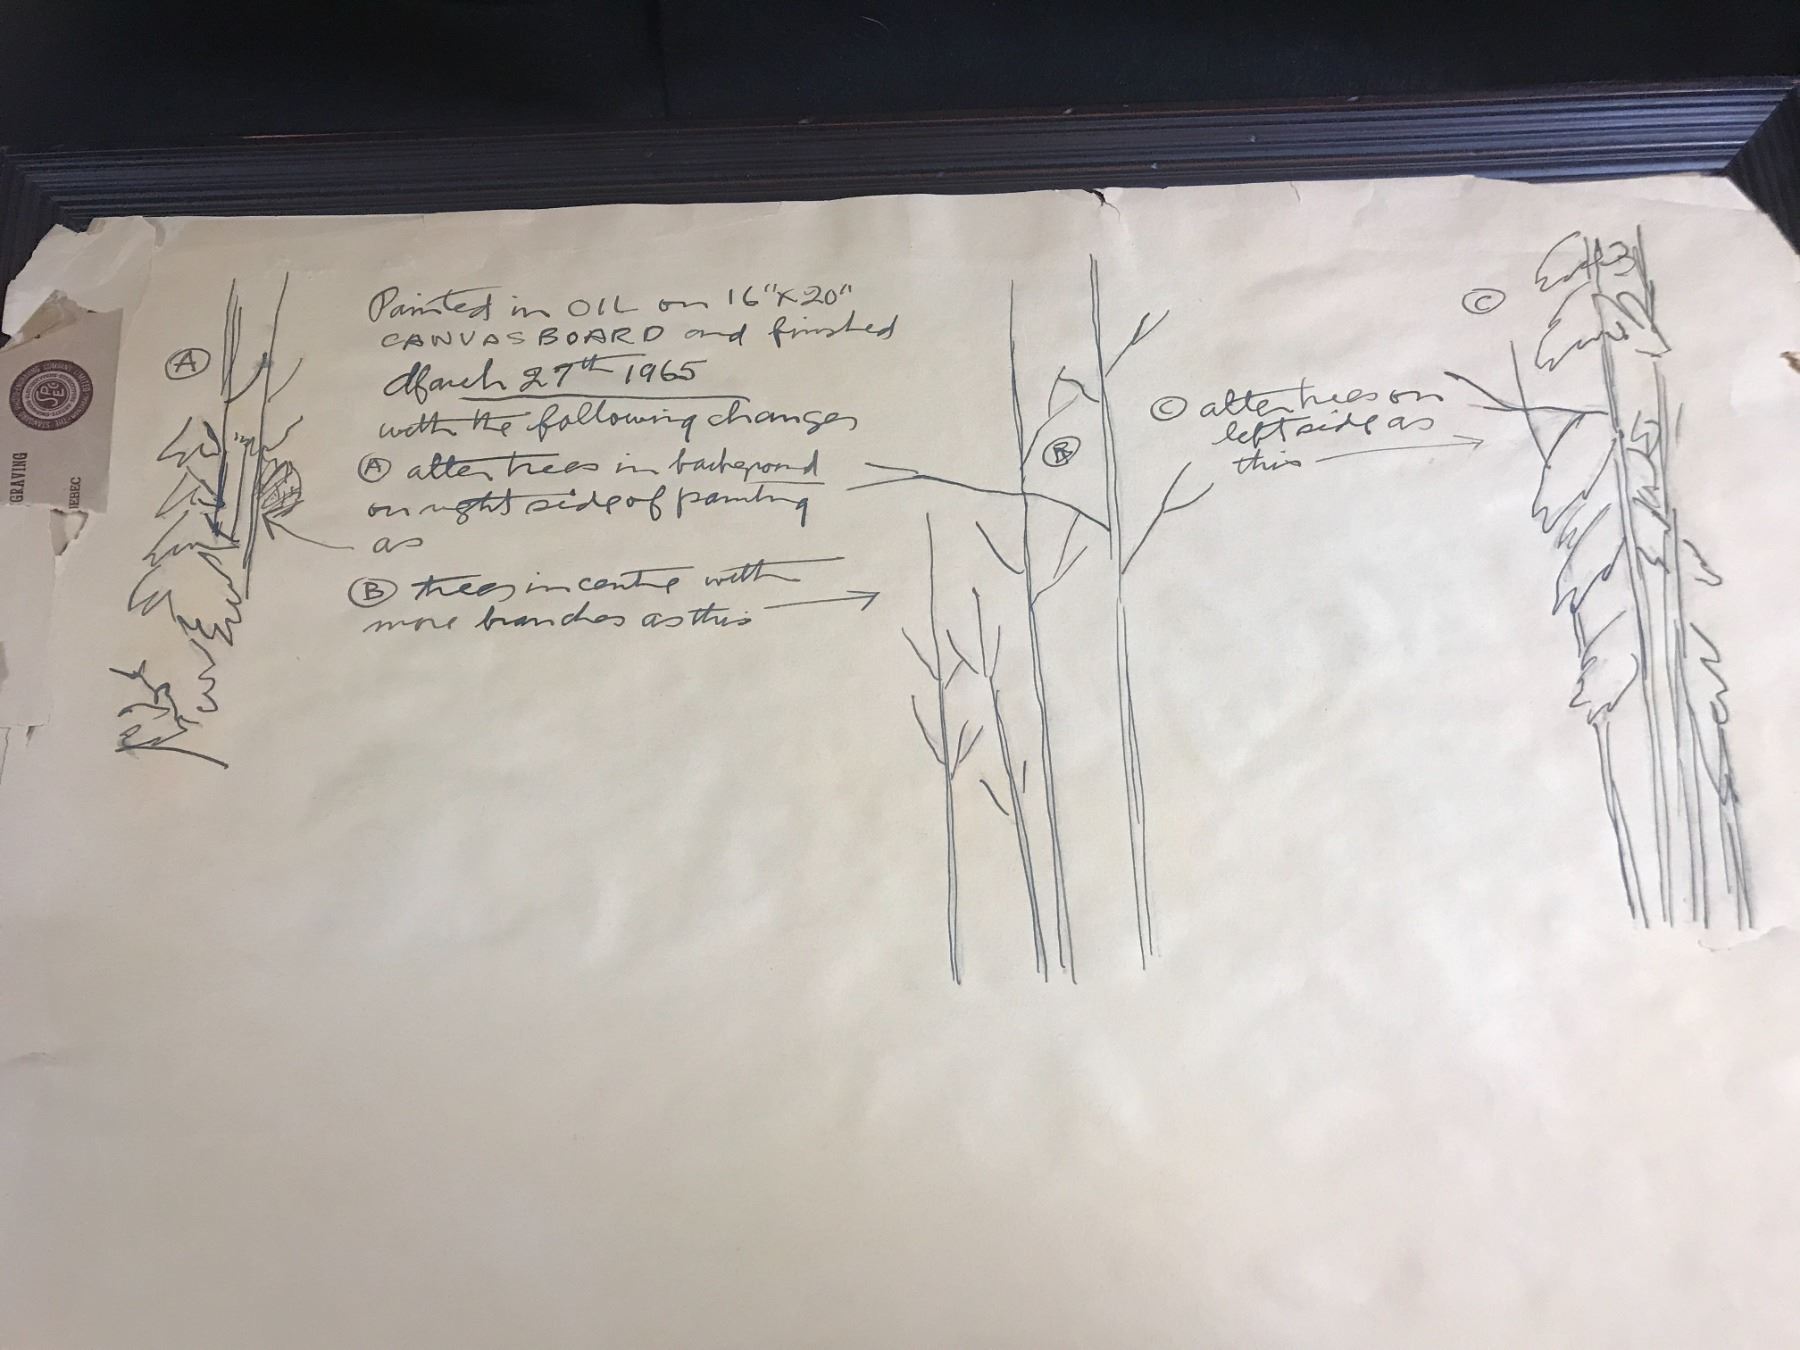 Painted in OIL on 16"X20"
CANVASBOARD and finished
March 27th 1965
with the following changes
Ⓐ alter trees in background
on right side of painting
as
Ⓑ trees in centre with
more branches as this
Ⓐ
Ⓑ
Ⓒ alter trees on
left side as
this
Ⓒ
GRAVING
UEBEC